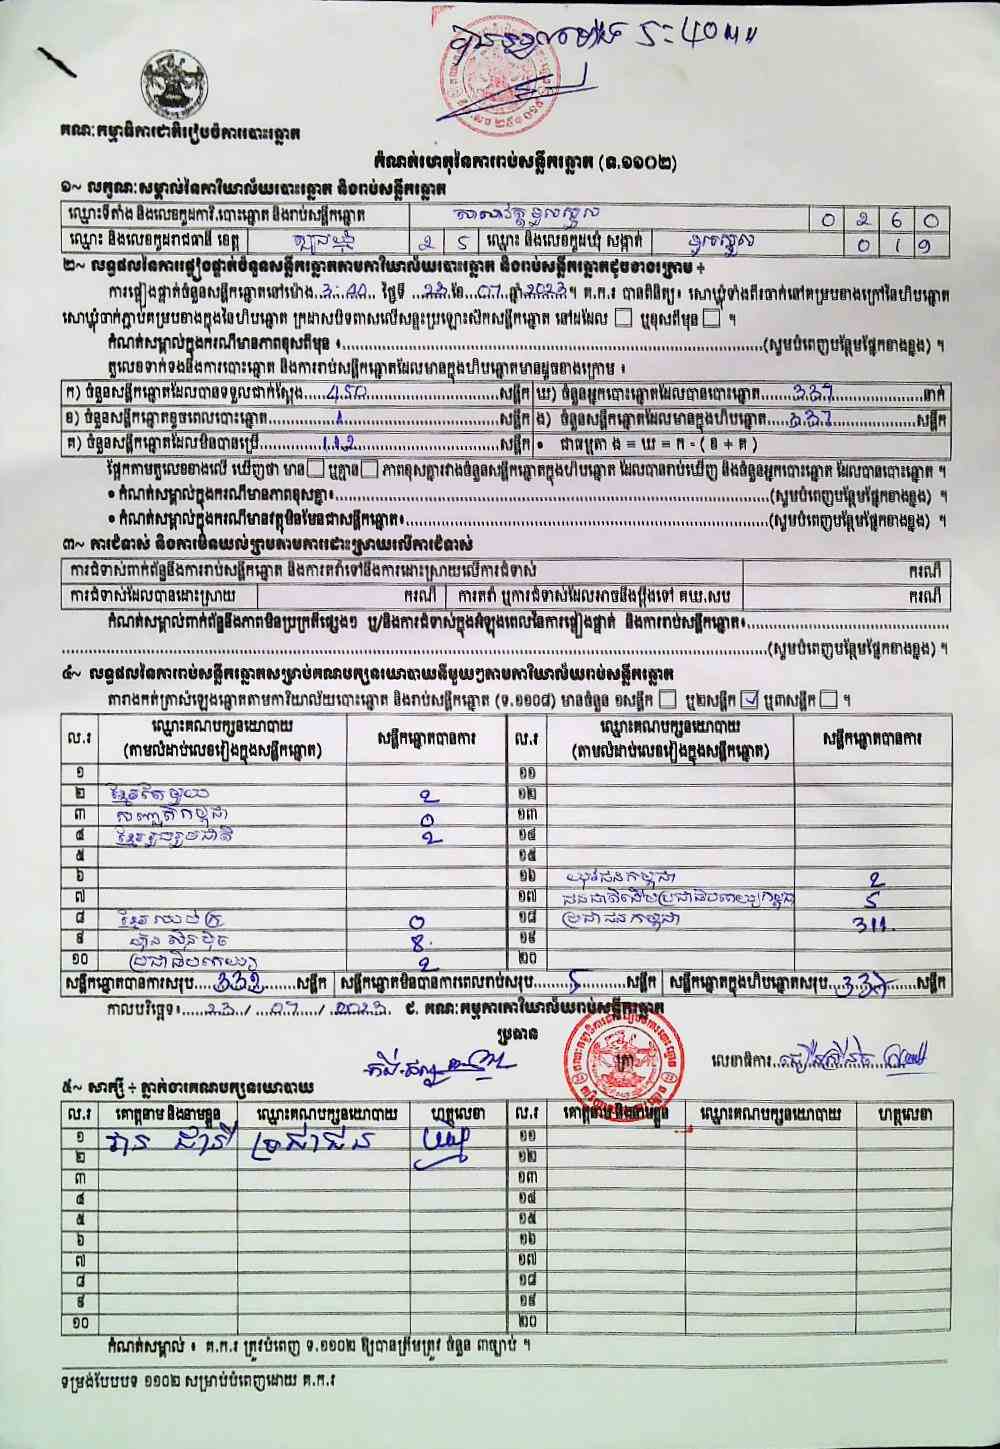 គណៈកម្មាធិការជាតិរៀបចំការបោះឆ្នោត
កំណត់ហេតុនៃការរាប់សន្លឹកឆ្នោត (ទ.១១០២)
១~ លក្ខណៈសម្គាល់នៃការិយាល័យបោះឆ្នោត និងរាប់សន្លឹកឆ្នោត
ឈ្មោះទីតាំង និងលេខកូដការិ.បោះឆ្នោត និងរាប់សន្លឹកឆ្នោត 0 2 6 0
ឈ្មោះ និងលេខកូដរាជធានី ខេត្ត ត្បូងឃ្មុំ 2 5 ឈ្មោះ និងលេខកូដឃុំ សង្កាត់ 0 1 9
២~ លទ្ធផលនៃការផ្ទៀងផ្ទាត់ចំនួនសន្លឹកឆ្នោតតាមការិយាល័យបោះឆ្នោត និងរាប់សន្លឹកឆ្នោតដូចខាងក្រោម ÷
ការផ្ទៀងផ្ទាត់ចំនួនសន្លឹកឆ្នោតនៅម៉ោង 3:00 ថ្ងៃទី 23 ខែ 07 ឆ្នាំ 2023 ។ គ.ក.រ បានពិនិត្យ៖ សោឃ្លុំទាំងពីរចាក់នៅគម្របខាងក្រៅនៃហិបឆ្នោត
សោឃ្លុំចាក់ភ្ជាប់គម្របខាងក្នុងនៃហិបឆ្នោត ក្រដាសបិទពាសលើសន្ទះប្រឡោះស៊កសន្លឹកឆ្នោត នៅដដែល ☐ ឬខុសពីមុន ☐ ។
កំណត់សម្គាល់ក្នុងករណីមានភាពខុសពីមុន ៖ (សូមបំពេញបន្ថែមផ្នែកខាងខ្នង) ។
តួលេខទាក់ទងនឹងការបោះឆ្នោត និងការរាប់សន្លឹកឆ្នោតដែលមានក្នុងហិបឆ្នោតមានដូចខាងក្រោម ៖
ក) ចំនួនសន្លឹកឆ្នោតដែលបានទទួលជាក់ស្តែង 450 សន្លឹក ឃ) ចំនួនអ្នកបោះឆ្នោតដែលបានបោះឆ្នោត 337 នាក់
ខ) ចំនួនសន្លឹកឆ្នោតខូចពេលបោះឆ្នោត 1 សន្លឹក ង) ចំនួនសន្លឹកឆ្នោតដែលមានក្នុងហិបឆ្នោត 337 សន្លឹក
គ) ចំនួនសន្លឹកឆ្នោតដែលមិនបានប្រើ 112 សន្លឹក • ជាធម្មតា ង = ឃ = ក - ( ខ + គ )
ផ្អែកតាមតួលេខខាងលើ ឃើញថា មាន ☐ ឬគ្មាន ☐ ភាពខុសគ្នារវាងចំនួនសន្លឹកឆ្នោតក្នុងហិបឆ្នោត ដែលបានរាប់ឃើញ និងចំនួនអ្នកបោះឆ្នោត ដែលបានបោះឆ្នោត ។
• កំណត់សម្គាល់ក្នុងករណីមានភាពខុសគ្នា៖ (សូមបំពេញបន្ថែមផ្នែកខាងខ្នង) ។
• កំណត់សម្គាល់ក្នុងករណីមានវត្ថុមិនមែនជាសន្លឹកឆ្នោត៖ (សូមបំពេញបន្ថែមផ្នែកខាងខ្នង) ។
៣~ ការជំទាស់ និងការមិនយល់ព្រមតាមការដោះស្រាយលើការជំទាស់
ការជំទាស់ពាក់ព័ន្ធនឹងការរាប់សន្លឹកឆ្នោត និងការតវ៉ាទៅនឹងការដោះស្រាយលើការជំទាស់ ករណី
ការជំទាស់ដែលបានដោះស្រាយ ករណី ការតវ៉ា ឬការជំទាស់ដែលអាចនឹងប្តឹងទៅ គឃ.សប ករណី
កំណត់សម្គាល់ពាក់ព័ន្ធនឹងភាពមិនប្រក្រតីផ្សេងៗ ឬ/និងការជំទាស់ក្នុងអំឡុងពេលនៃការផ្ទៀងផ្ទាត់ និងការរាប់សន្លឹកឆ្នោត៖
(សូមបំពេញបន្ថែមផ្នែកខាងខ្នង) ។
៤~ លទ្ធផលនៃការរាប់សន្លឹកឆ្នោតសម្រាប់គណបក្សនយោបាយនីមួយៗតាមការិយាល័យរាប់សន្លឹកឆ្នោត
តារាងកត់ត្រាសំឡេងឆ្នោតតាមការិយាល័យបោះឆ្នោត និងរាប់សន្លឹកឆ្នោត (ទ.១១០៨) មានចំនួន ១សន្លឹក ☐ ឬ២សន្លឹក ☑ ឬ៣សន្លឹក ☐ ។
ល.រ ឈ្មោះគណបក្សនយោបាយ សន្លឹកឆ្នោតបានការ ល.រ ឈ្មោះគណបក្សនយោបាយ សន្លឹកឆ្នោតបានការ
(តាមលំដាប់លេខរៀងក្នុងសន្លឹកឆ្នោត) (តាមលំដាប់លេខរៀងក្នុងសន្លឹកឆ្នោត)
១ ១១
២ ខ្មែរតែមួយ 2 ១២
៣ កញ្ញតិកម្ពុជា 0 ១៣
៤ ខ្មែររួបរួមជាតិ 2 ១៤
៥ ១៥
៦ ១៦ យុវជនកម្ពុជា 2
៧ ១៧ ជនជាតិដើមប្រជាធិបតេយ្យកម្ពុជា 5
៨ ខ្មែរឈប់ក្រ 0 ១៨ ប្រជាជនកម្ពុជា 311
៩ ហ៊្វុនស៊ិនប៉ិច 8 ១៩
១០ ប្រជាធិបតេយ្យ 2 ២០
សន្លឹកឆ្នោតបានការសរុប 332 សន្លឹក សន្លឹកឆ្នោតមិនបានការពេលរាប់សរុប 5 សន្លឹក សន្លឹកឆ្នោតក្នុងហិបឆ្នោតសរុប 337 សន្លឹក
កាលបរិច្ឆេទ៖ 23 / 07 / 2023 ជ. គណៈកម្មការការិយាល័យរាប់សន្លឹកឆ្នោត
ប្រធាន
លេខាធិការ
៥~ សាក្សី ÷ ភ្នាក់ងារគណបក្សនយោបាយ
ល.រ គោត្តនាម និងនាមខ្លួន ឈ្មោះគណបក្សនយោបាយ ហត្ថលេខា ល.រ គោត្តនាម និងនាមខ្លួន ឈ្មោះគណបក្សនយោបាយ ហត្ថលេខា
១ វាន ដានី ប្រជាជន ១១
២ ១២
៣ ១៣
៤ ១៤
៥ ១៥
៦ ១៦
៧ ១៧
៨ ១៨
៩ ១៩
១០ ២០
កំណត់សម្គាល់ ៖ គ.ក.រ ត្រូវបំពេញ ទ.១១០២ ឱ្យបានត្រឹមត្រូវ ចំនួន ៣ច្បាប់ ។
ទម្រង់បែបបទ ១១០២ សម្រាប់បំពេញដោយ គ.ក.រ